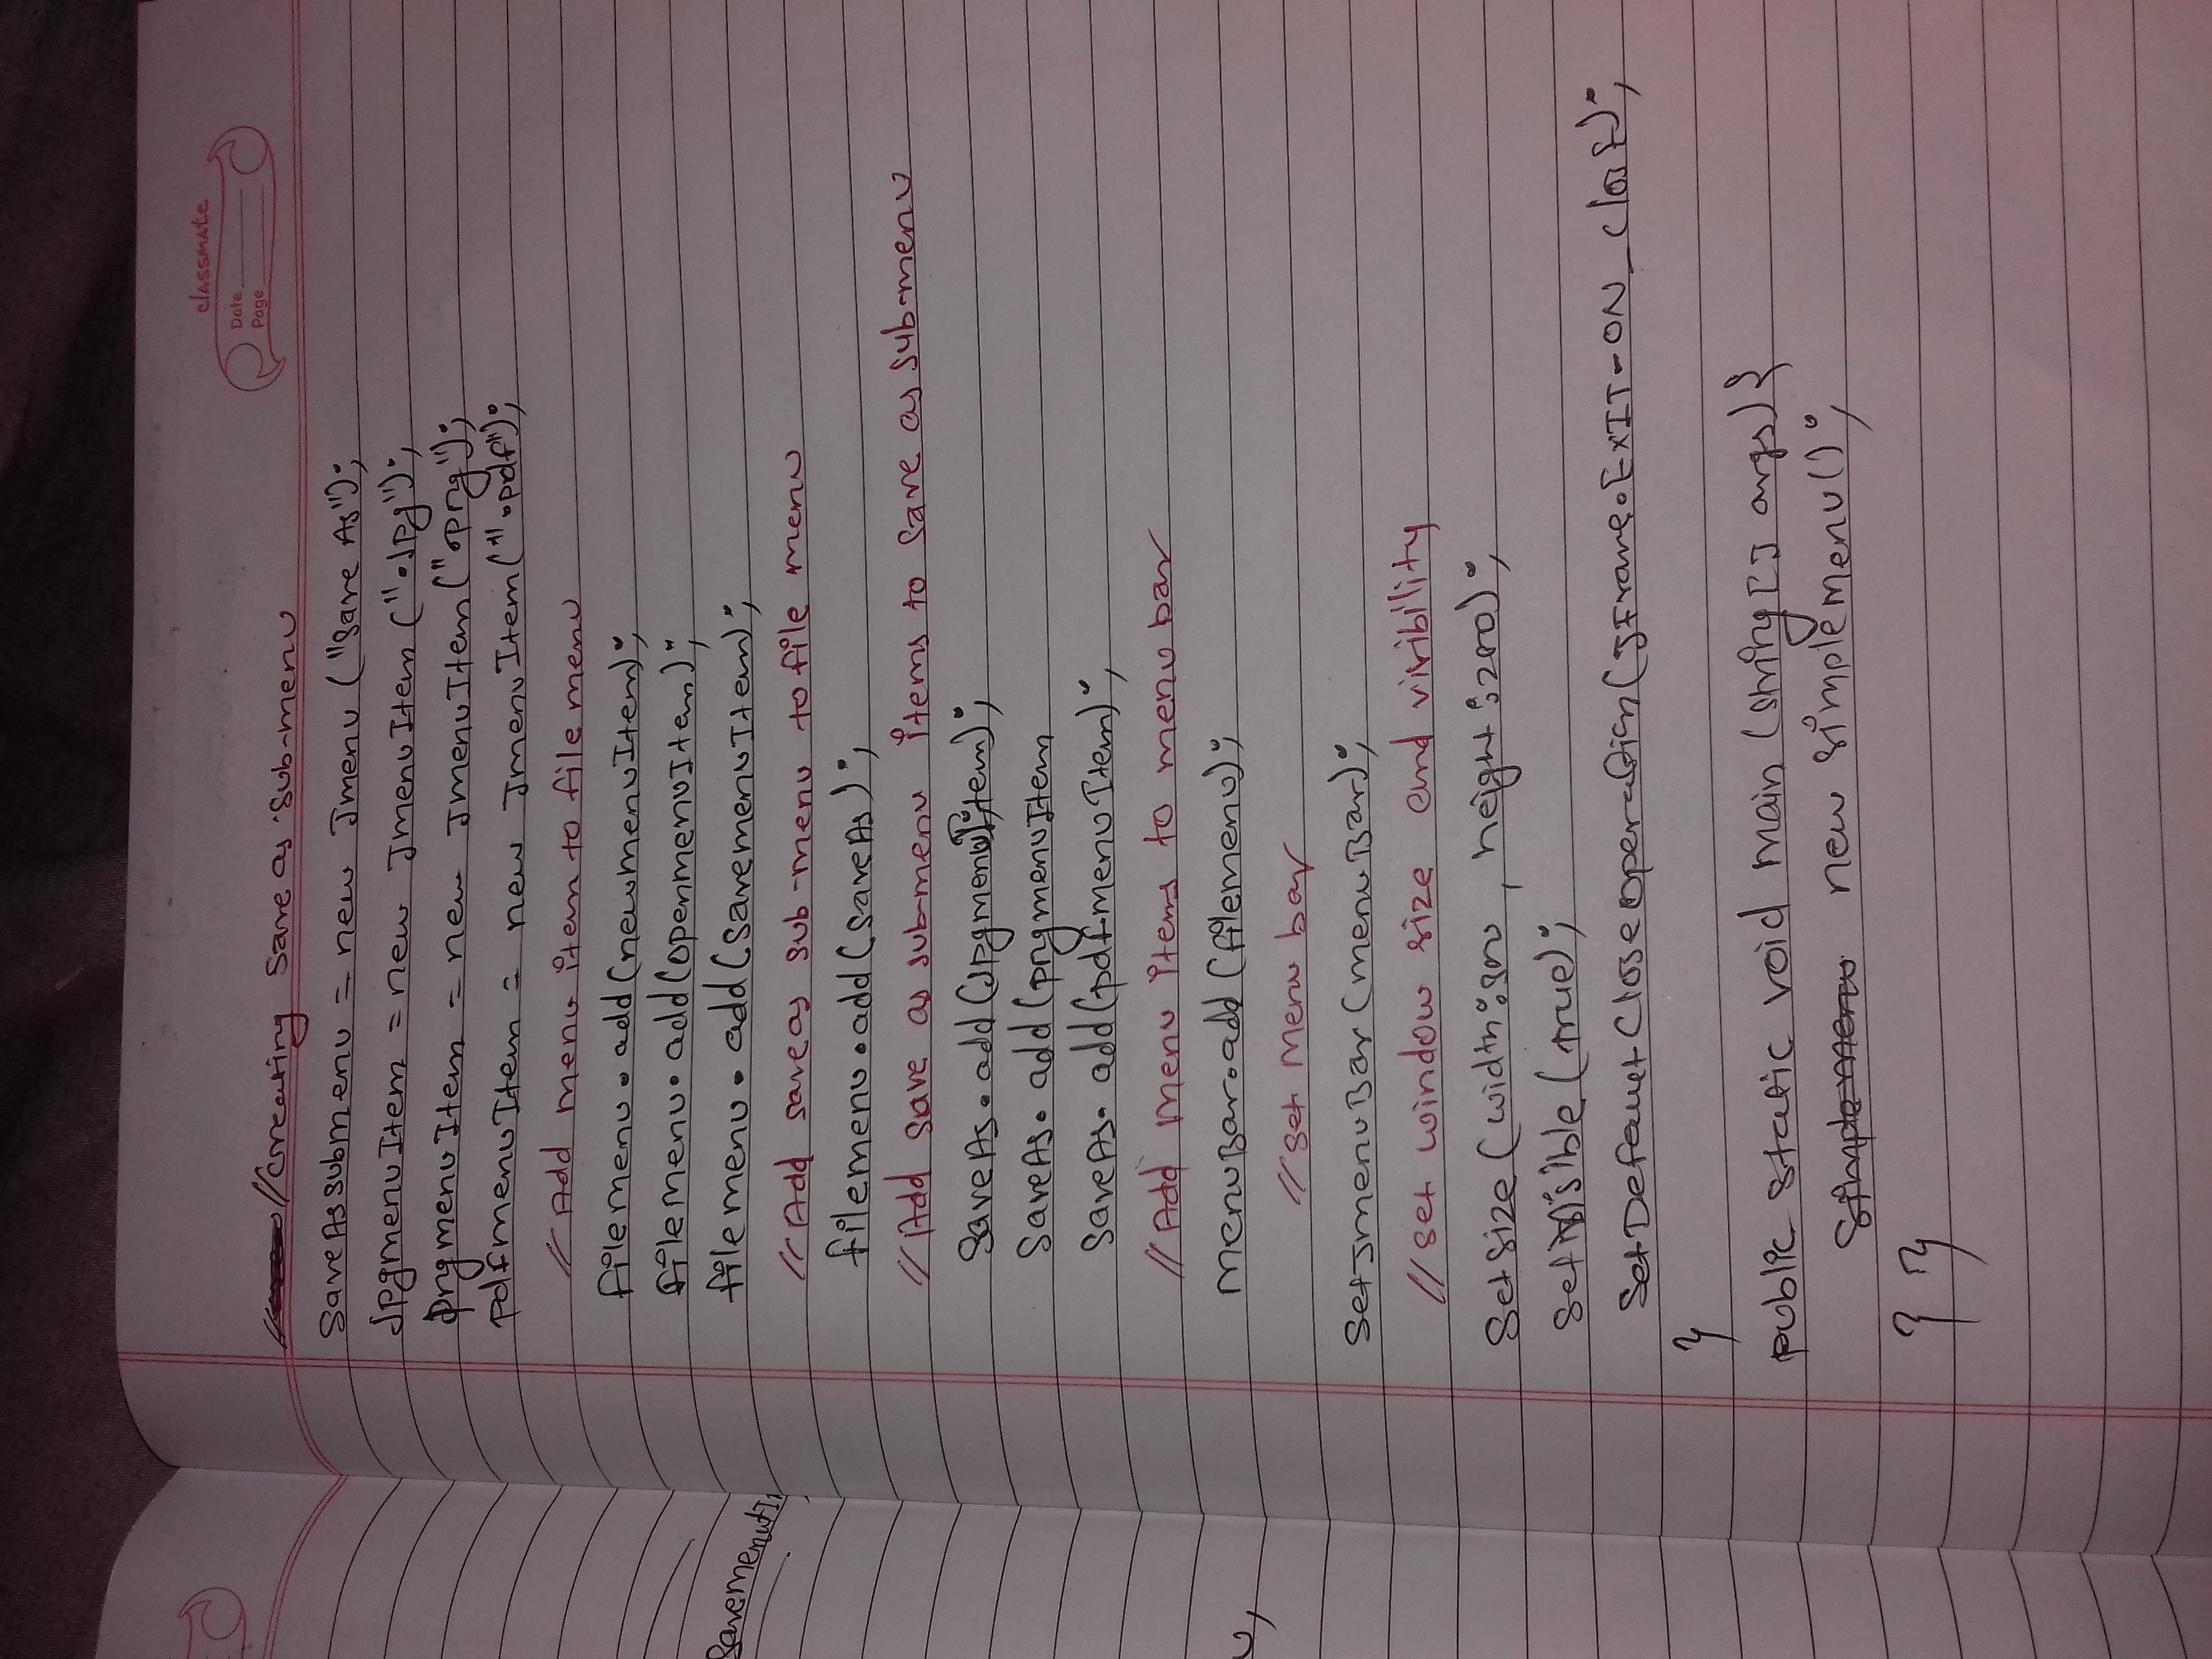 classmate
Date
Page
//creating save as sub-menu
saveAssubmenu = new Jmenu ("save As");
JpgmenuItem = new JmenuItem (".Jpg");
pngmenuItem = new JmenuItem (".png");
pdfmenuItem = new JmenuItem(".pdf");
// Add menu item to file menu
filemenu.add(newmenuItem);
filemenu.add(openmenuItem);
filemenu.add(savemenuItem);
// Add saveas sub-menu to file menu
filemenu.add(saveAs);
// Add save as sub-menu items to save as sub-menu
saveAs.add(JpgmenuItem);
saveAs.add(pngmenuItem
saveAs.add(pdfmenuItem);
// Add menu items to menu bar
menuBar.add(filemenu);
// set menu bar
setJmenuBar(menuBar);
// set window size and visibility
setsize(width:300, height:200);
setvisible(true);
setDefaultCloseoperation(JFrame.EXIT-ON_ClosE);
}
public static void main (string[] args){
simple menu new simplemenu();
} }
savemenuI
u,